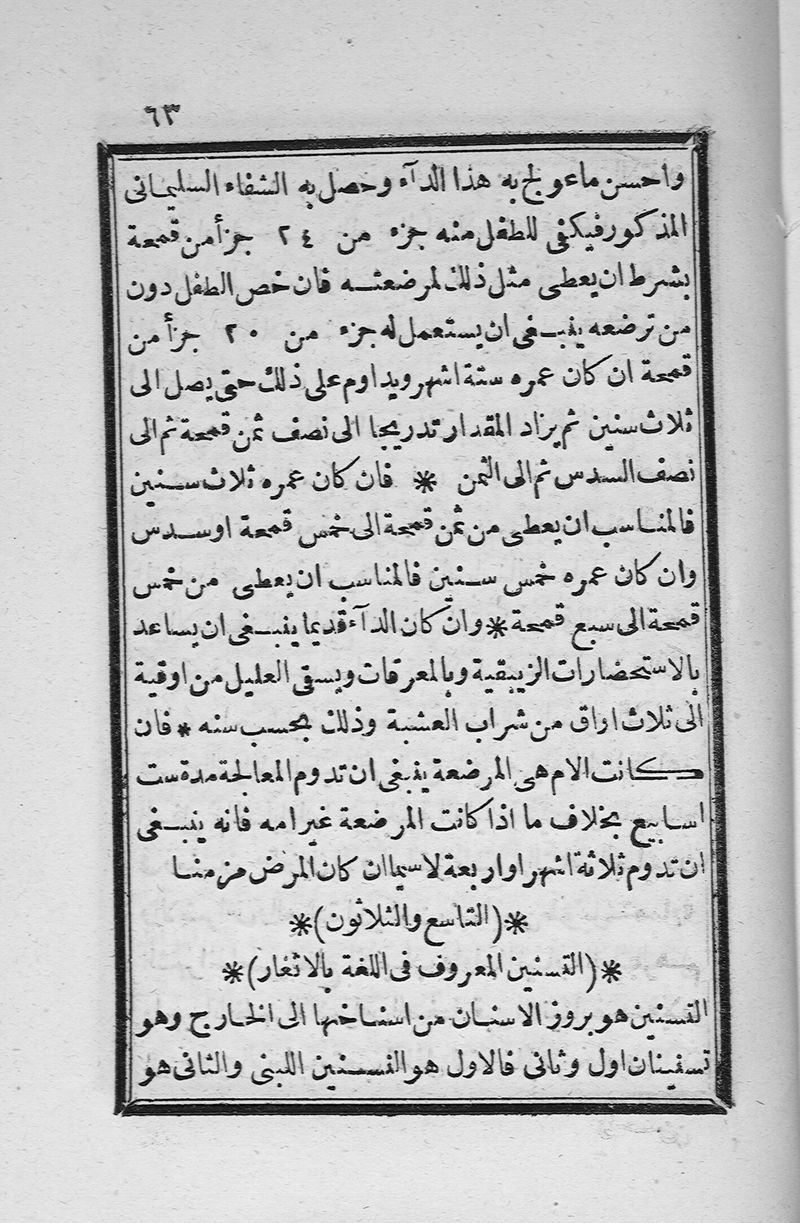 ٦٣
واحسن ماعولج به هذا الدآء وحصل به الشفاء السليمانى
المذكور فيكفى للطفل منه جزء من ٢٤ جزأ من قمحة
بشرط ان يعطى مثل ذلك لمرضعته فان خص الطفل دون
من ترضعه ينبغى ان يستعمل له جزء من ٢٠ جزأ من
قمحة ان كان عمره ستة اشهر ويداوم على ذلك حتى يصل الى
ثلاث سنين ثم يزاد المقدار تدريجا الى نصف ثمن قمحة ثم الى
نصف السدس ثم الى الثمن * فان كان عمره ثلاث سنين
فالمناسب ان يعطى من ثمن قمحة الى خمس قمحة او سدس
وان كان عمره خمس سنين فالمناسب ان يعطى من خمس
قمحة الى سبع قمحة * وان كان الدآء قديما ينبغى ان يساعد
بالاستحضارات الزيبقية وبالمعرقات ويسقى العليل من اوقية
الى ثلاث اواق من شراب العشبة وذلك بحسب سنه * فان
كانت الام هى المرضعة ينبغى ان تدوم المعالجة مدة ست
اسابيع بخلاف ما اذا كانت المرضعة غير امه فانه ينبغى
ان تدوم ثلاثة اشهر او اربعة لاسيما ان كان المرض مزمنا
*(التاسع والثلاثون)*
*(التسنين المعروف فى اللغة بالاثغار)*
التسنين هو بروز الاسنان من اسناخها الى الخارج وهو
تسنينان اول وثانى فالاول هو التسنين اللبنى والثانى هو